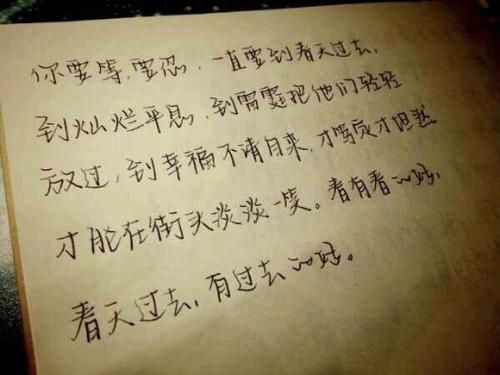 你要等,要忍,一直要到春天过去,
到灿烂平息,到雷霆把他们轻轻
放过,到幸福不请自来,才笃定才坦然,
才能在街头淡淡一笑。春有春的好,
春天过去,有过去的好。